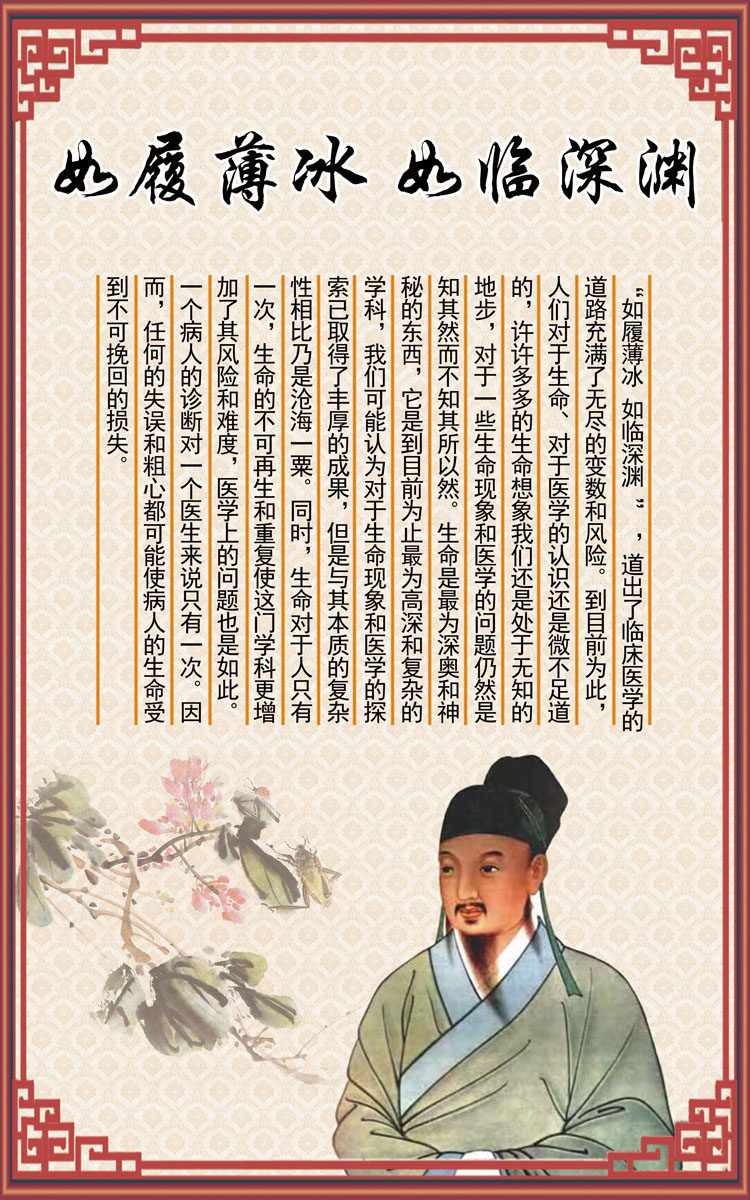 如履薄冰 如临深渊
“如履薄冰 如临深渊 ”，道出了临床医学的
道路充满了无尽的变数和风险。到目前为此，
人们对于生命、对于医学的认识还是微不足道
的，许许多多的生命想象我们还是处于无知的
地步，对于一些生命现象和医学的问题仍然是
知其然而不知其所以然。生命是最为深奥和神
秘的东西，它是到目前为止最为高深和复杂的
学科，我们可能认为对于生命现象和医学的探
索已取得了丰厚的成果，但是与其本质的复杂
性相比乃是沧海一粟。同时，生命对于人只有
一次，生命的不可再生和重复使这门学科更增
加了其风险和难度，医学上的问题也是如此。
一个病人的诊断对一个医生来说只有一次。因
而，任何的失误和粗心都可能使病人的生命受
到不可挽回的损失。